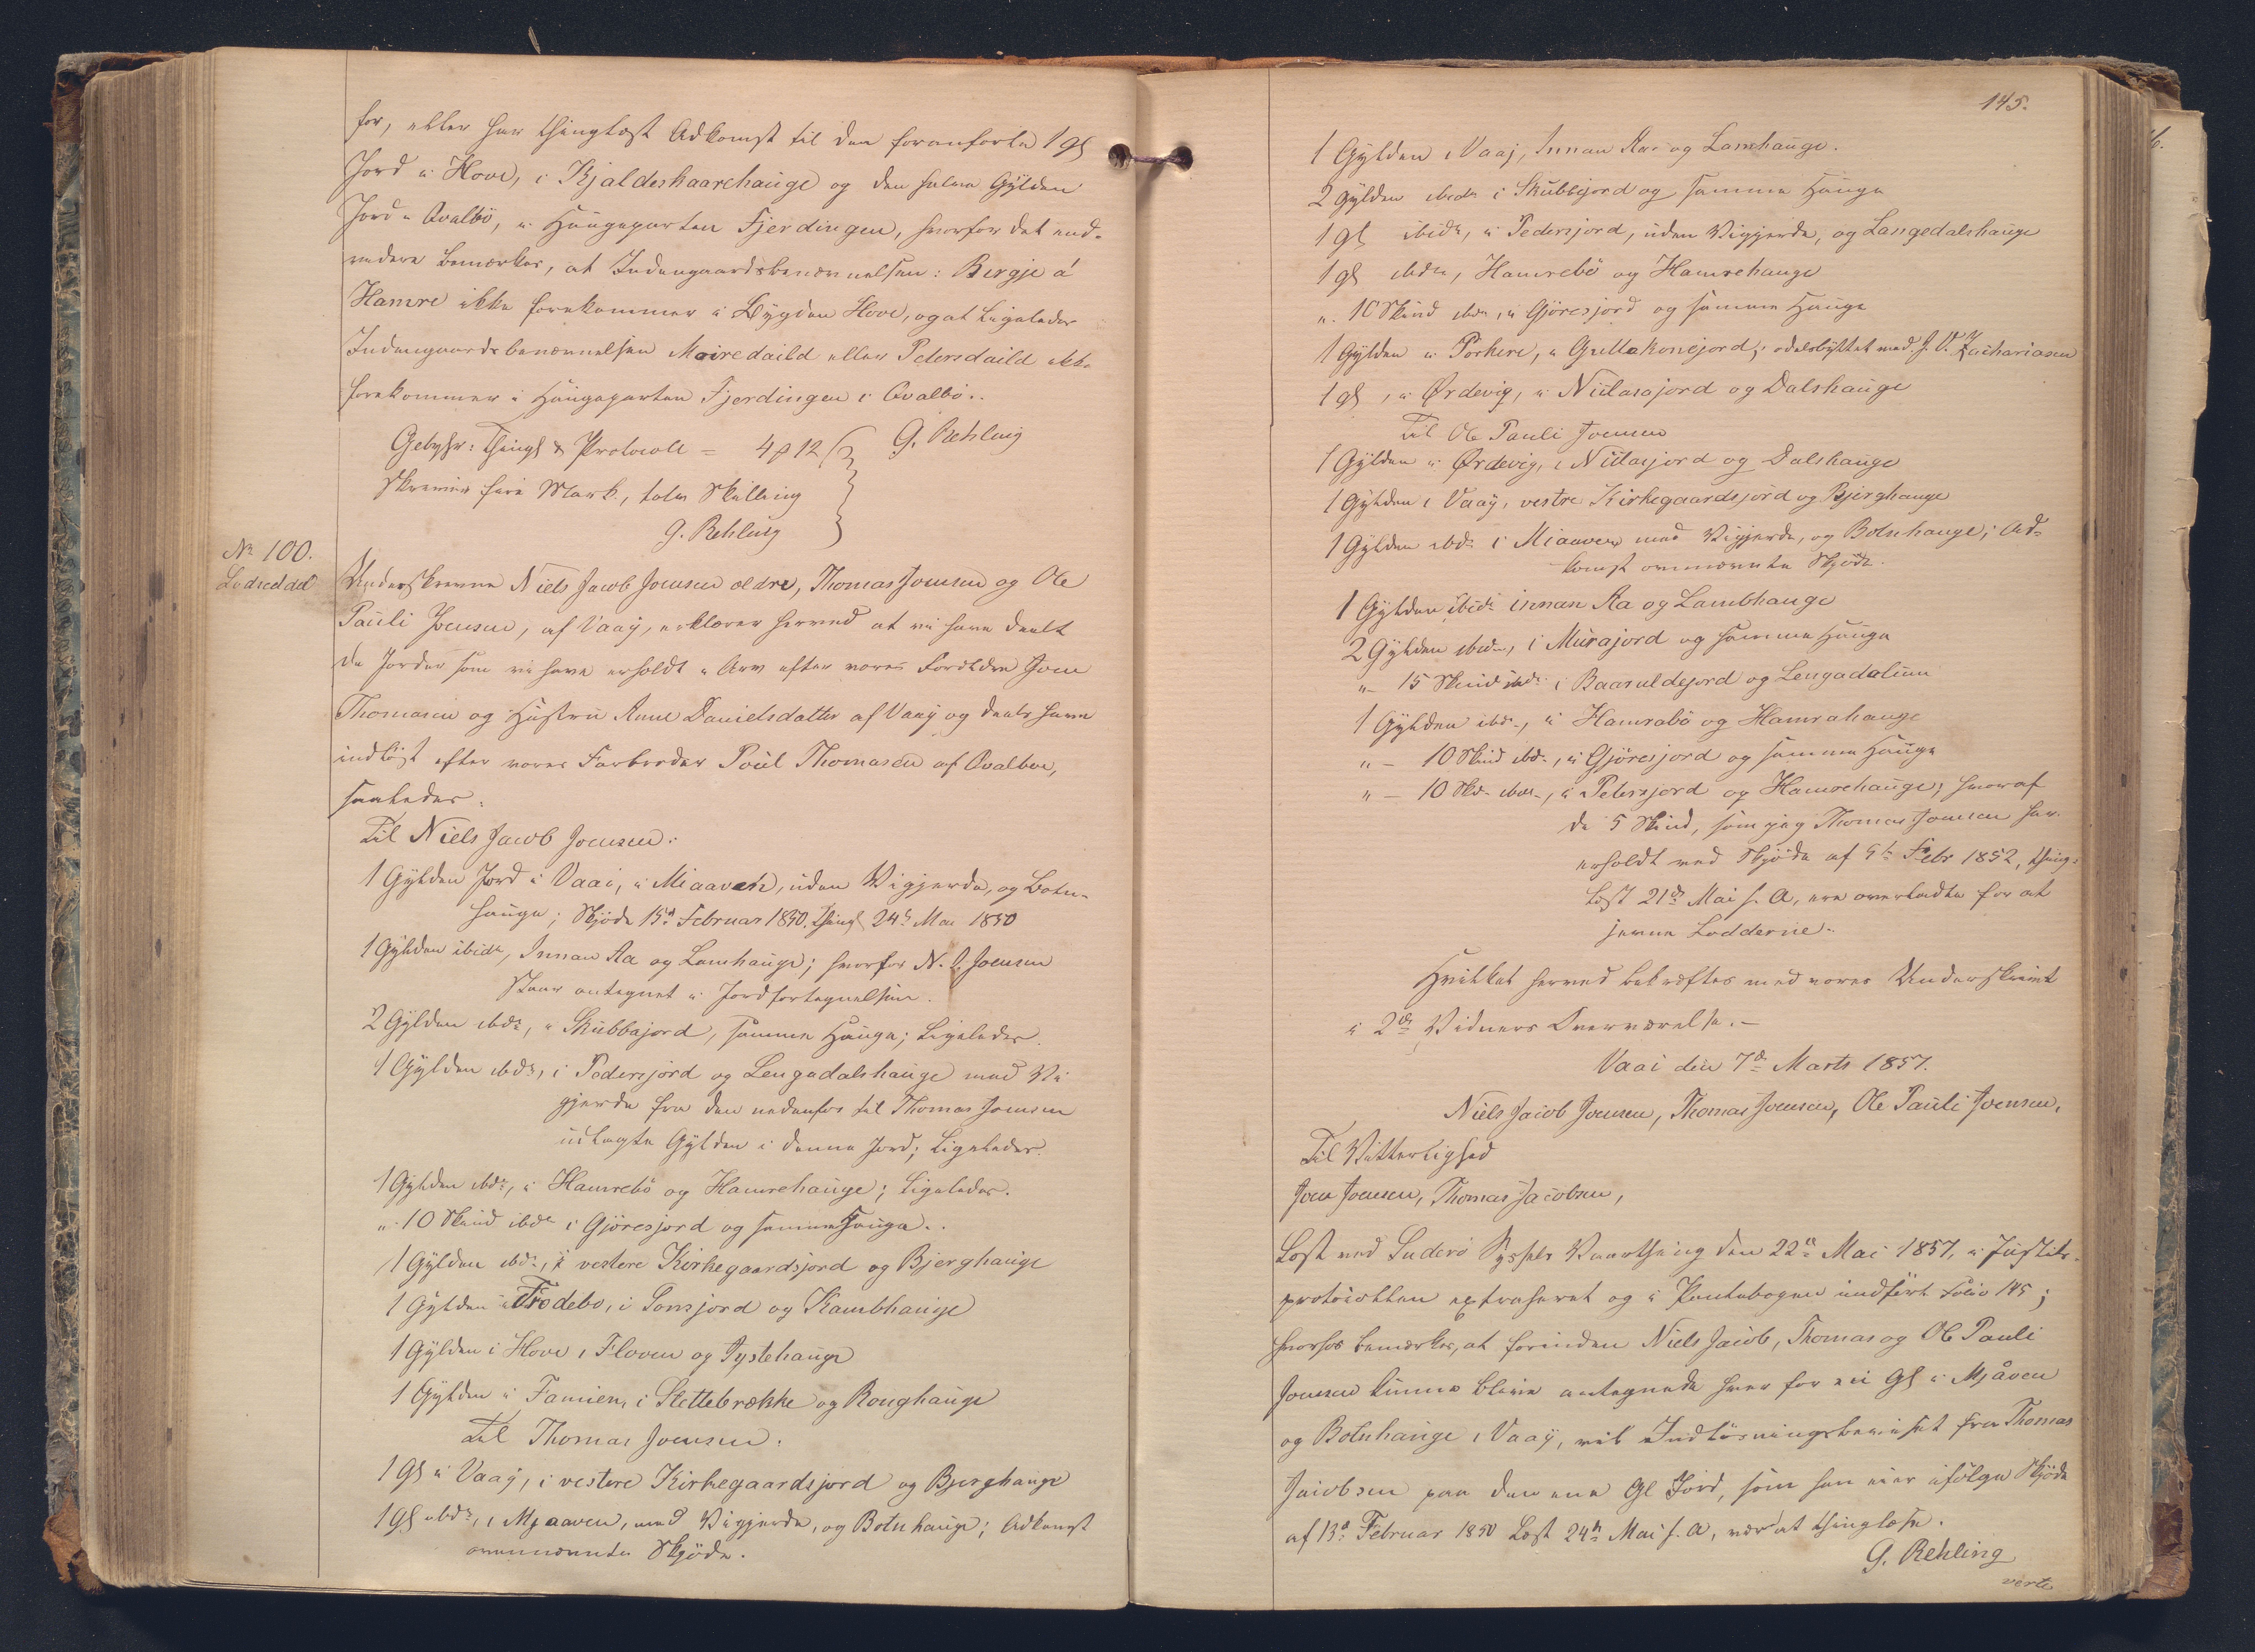 for, eller har thinglæst Adkomst til den foranførte 1 gl
Jord i Hove, i Kjaldeskaarehauge og den halve Gylden
Jord i Qvalbö, i Haugeparten Fjerdingen, hvorfor det end-
videre bemærkes, at Indengaardsbenævnelsen: Bergje á
Hamre ikke forekommer i Bygden Hove, og at ligeledes
Indengaardsbenævnelsen Moiredaild eller Petersdaild ikke
forekommer i Haugeparten Fjerdingen i Qvalbö.
G. Rehling
Gebyhr: Thingl & Protocoll = 4 12
Skriver fire Mark, tolv Skilling
G. Rehling
No 100.
Lodseddel
Underskrevne Niels Jacob Joensen ældre, Thomas Joensen og Ole
Pauli Joensen, af Vaaÿ, erklærer herved at vi have deelt
de Jorder som vi have erholdt i Arv efter vores Forældre Joen
Thomasen og Hustru Anne Danielsdatter af Vaaÿ og deels have
indløst efter vores Farbroder Poul Thomasen af Qvalböe,
saaledes:
Til Niels Jacob Joensen:
1 Gylden Jord i Vaai, i Miaaveh, uden Vigjerde, og Botn-
hauge; Skjøde 15d Februar 1850. Thingl 24d Mai 1850
1 Gylden ibidn, Innan Aa og Lamhauge; hvorfor N. J. Joensen
staar antegnet i Jordfortegnelsen.
2 Gylden ibdn, i Skubbajord, samme Hauge; Ligeledes.
1 Gylden ibdn, i Pedersjord og Lengadalshauge med Vi
gjerde fra den nedenfor til Thomas Joensen
udlagte Gylden i denne Jord; Ligeledes.
1 Gylden ibdn, i Hamrebö og Hamrehauge; Ligeledes.
" 10 Skind ibdn i Gjöresjord og samme Hauge.
1 Gylden ibdn, i vestere Kirkegaardsjord og Bjerghauge
1 Gylden i Frodebo, i Sonsjord og Kambhauge
1 Gylden i Hove i Floven og Tystehauge
1 Gylden i Famien, i Slettebrække og Roughauge
Til Thomas Joensen:
1 gl i Vaaÿ, i vestere Kirkegaardsjord og Bjerghauge
1 gl ibdn, i Mjaaven, med Vigjerde, og Botnhauge; Adkomst
ovennævnte Skjøde.
145.
1 Gylden i Vaaj, Innan Aae og Lamhauge.
2 Gylden ibidn i Skubbejord og samme Hauge
1 gl ibidn, i Pedersjord, uden Vigjerde, og Langedalshauge
1 gl ibdn, Hamrebö og Hamrehauge
" 10 Skind ibdn, i Gjöresjord og samme Hauge
1 Gylden i Porkere, i Grellakonejord, odelsbyttet med J. V. Zachariasen
1 gl, i Ørdevig, i Niclasajord og Dalshauge
Til Ole Pauli Joensen
1 Gylden i Ørdevig, i Niclasjord og Dalshauge
1 Gylden i Vaaÿ, vestre Kirkegaardsjord og Bjerghauge
1 Gylden ibdn i Miaaven med Vigjerde, og Botnhauge; Ad-
komst ovennævnte Skjöde.
1 Gylden ibidn innan Aa og Lambhauge
2 Gylden ibdn, i Murajord og samme Hauge
" - 15 Skind ibdn i Baaruldejord og Lengadalinn
1 Gylden ibdn, i Hamrabö og Hamrahauge
" - 10 Skind ibdn, i Gjöresjord og samme Hauge
" - 10 Skd. ibdn, i Petersjord og Hamrehauge; hvoraf
de 5 Skind, som jeg Thomas Joensen har
erholdt med Skjöde af 9de Febr 1852, thing-
læst 21de Mai s. A, ere overladte for at
jevne Lodderne.
Hvilket herved bekræftes med vores Underskrivt
i 2de Vidners Overværelse.-
Vaai den 7de Marts 1857.
Niels Jacob Joensen, Thomas Joensen, Ole Pauli Joensen,
Til Vitterlighed
Joen Joensen, Thomas Jacobsen,
Læst ved Suderö Syssels Vaarthing den 22de Mai 1857, i Justits-
protocollen extraheret og i Pantebogen indfört Folio 145;
hvorfor bemærkes, at forinden Niels Jacob, Thomas og Ole Pauli
Joensen kunne blive antegnede hver for een gl i Mjåven
og Botnhauge i Vaaÿ, vil Indløsningsbeviset fra Thomas
Jacobsen paa den ene Gl Jord, som han eier ifølge Skjöde
af 13d Februar 1850 Læst 24de Mai s. A, være at thinglæse.
G. Rehling
verte